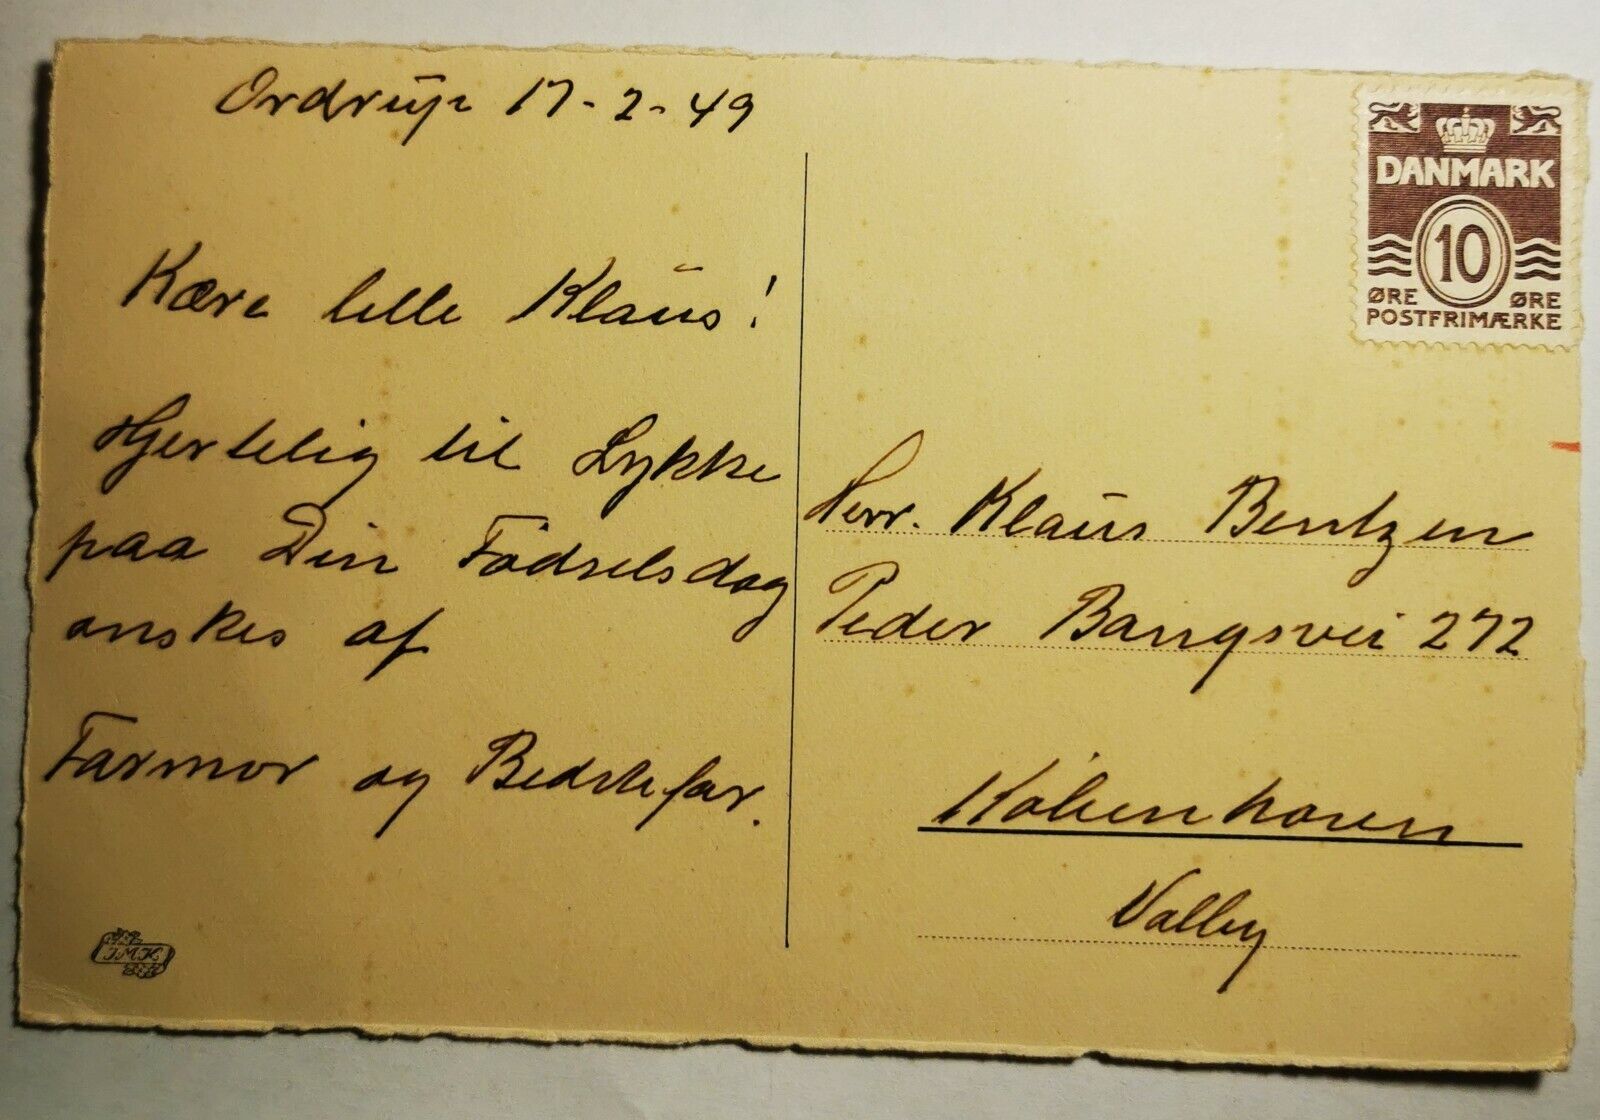 Ordrup 17-2-49
Kære lille Klaus!
Hjertelig til Lykke
paa Din Födselsdag
önskes af
Farmor og Bedstefar.
JMK
DANMARK
10
ØRE ØRE
POSTFRIMÆRKE
Herr. Klaus Bentzen
Peder Bangsvei 272
København
Valby